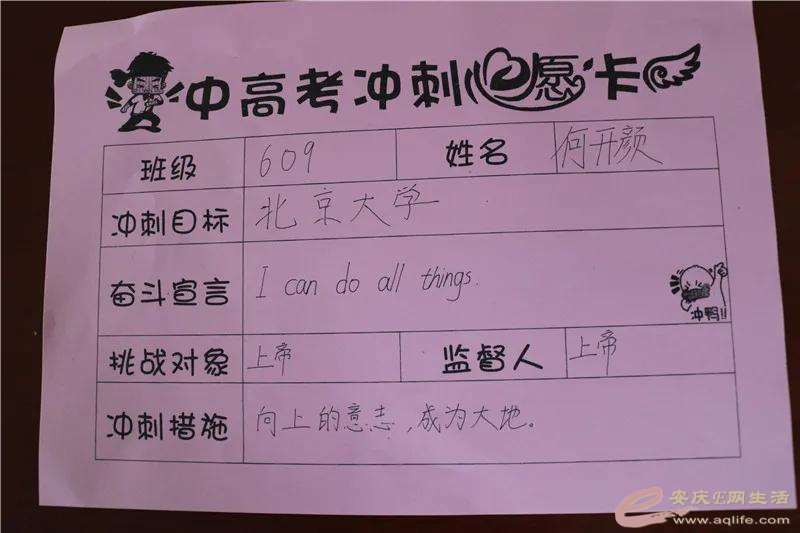 中高考冲刺心愿卡
班级 609 姓名 何开颜
冲刺目标 北京大学
奋斗宣言 I can do all things.
冲鸭!!
挑战对象 上帝 监督人 上帝
冲刺措施 向上的意志,成为大地。
安庆E网生活
www.aqlife.com